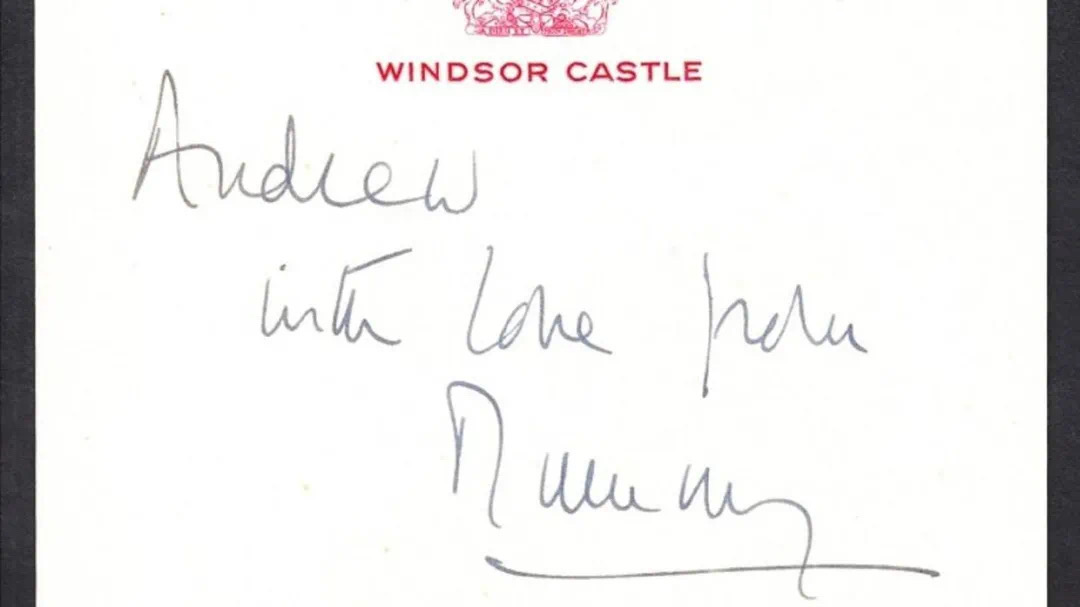 WINDSOR CASTLE
Andrew
with love from
Mummy